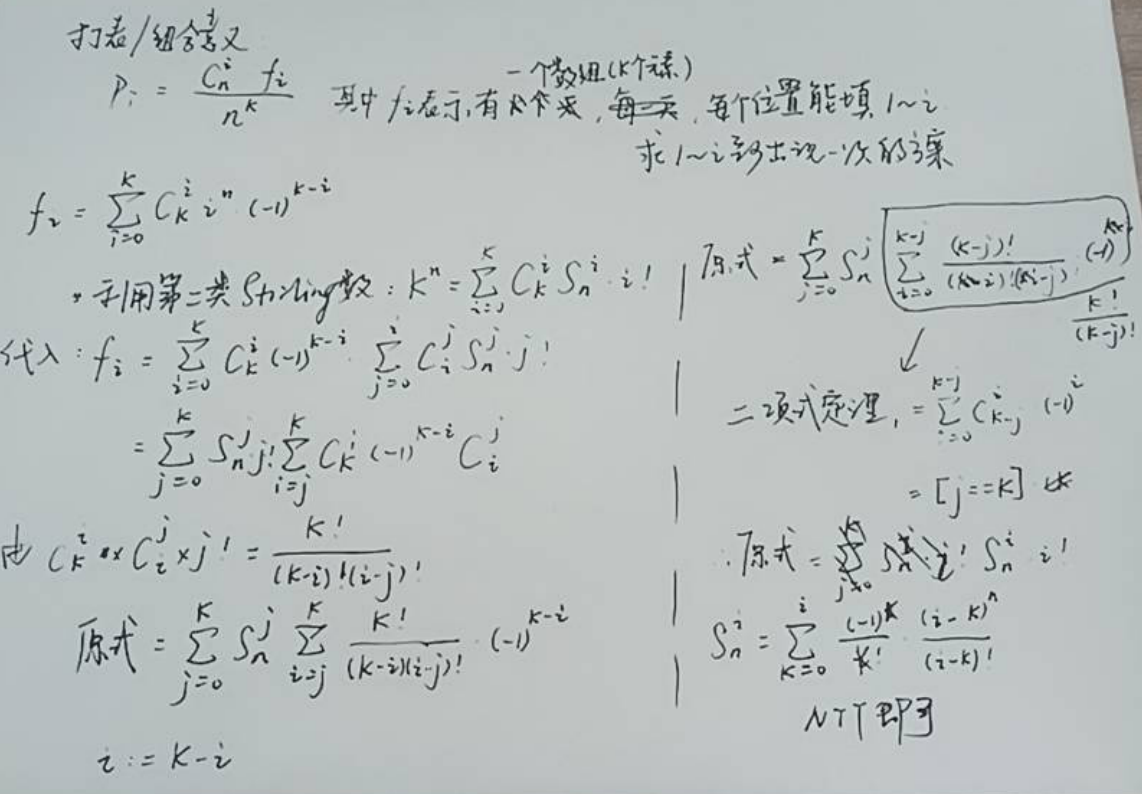 打表/组合意义
P_i = \frac{C_n^i f_i}{n^k} 其中 f_i 表示,有 k 个 , 每 , 每个位置能填 1~i
一个数组(k个元素)
求 1~i 至少出现一次的方案
f_i = \sum_{i=0}^{k} C_k^i i^n (-1)^{k-i}
利用第二类Stirling数: k^n = \sum_{i=0}^{k} C_k^i S_n^i · i!
代入: f_i = \sum_{i=0}^{k} C_k^i (-1)^{k-i} · \sum_{j=0}^{i} C_i^j S_n^j · j!
= \sum_{j=0}^{k} S_n^j j! \sum_{i=j}^{k} C_k^i (-1)^{k-i} C_i^j
由 C_k^i × C_i^j × j! = \frac{k!}{(k-i)!(i-j)!}
原式 = \sum_{j=0}^{k} S_n^j \sum_{i=j}^{k} \frac{k!}{(k-i)(i-j)!} · (-1)^{k-i}
i := k-i
原式 = \sum_{j=0}^{k} S_n^j \sum_{i=0}^{k-j} \frac{(k-j)!}{ } (-1) \frac{k!}{(k-j)!}
二项式定理, = \sum_{i=0}^{k-j} C_{k-j}^i (-1)^i
= [j==k]
∴原式 = S_n^i · i!
S_n^i = \sum_{k=0}^{i} \frac{(-1)^k}{k!} · \frac{(i-k)^n}{(i-k)!}
NTT即可